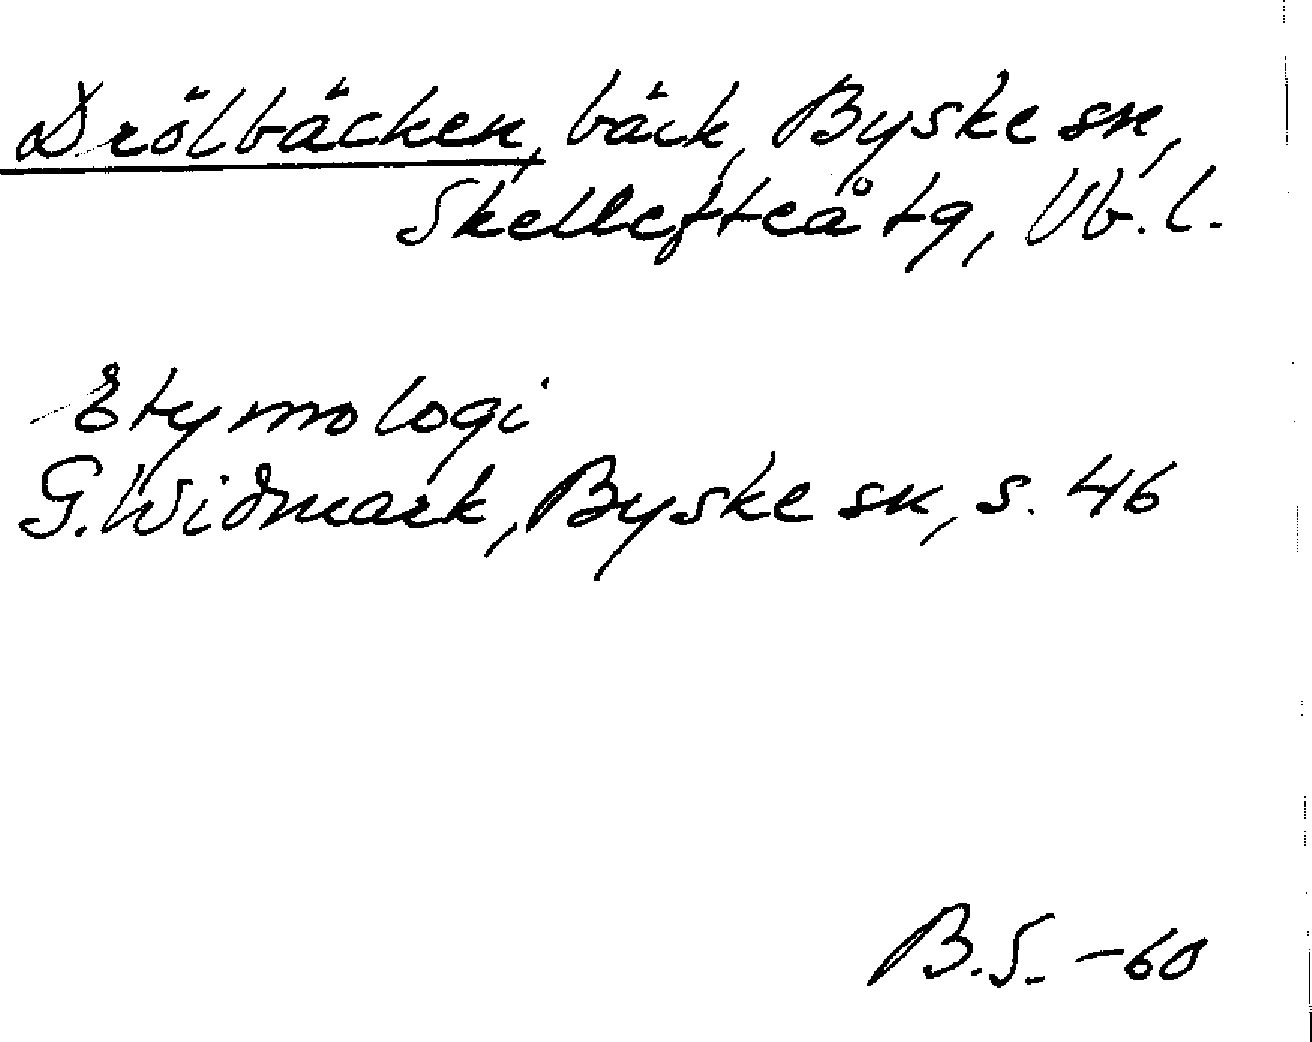 Drölbäcken, bäck, Byske sn,
Skellefteå tg, Vb. l.
Etymologi
G. Widmark, Byske sn, s. 46
B.S. -60